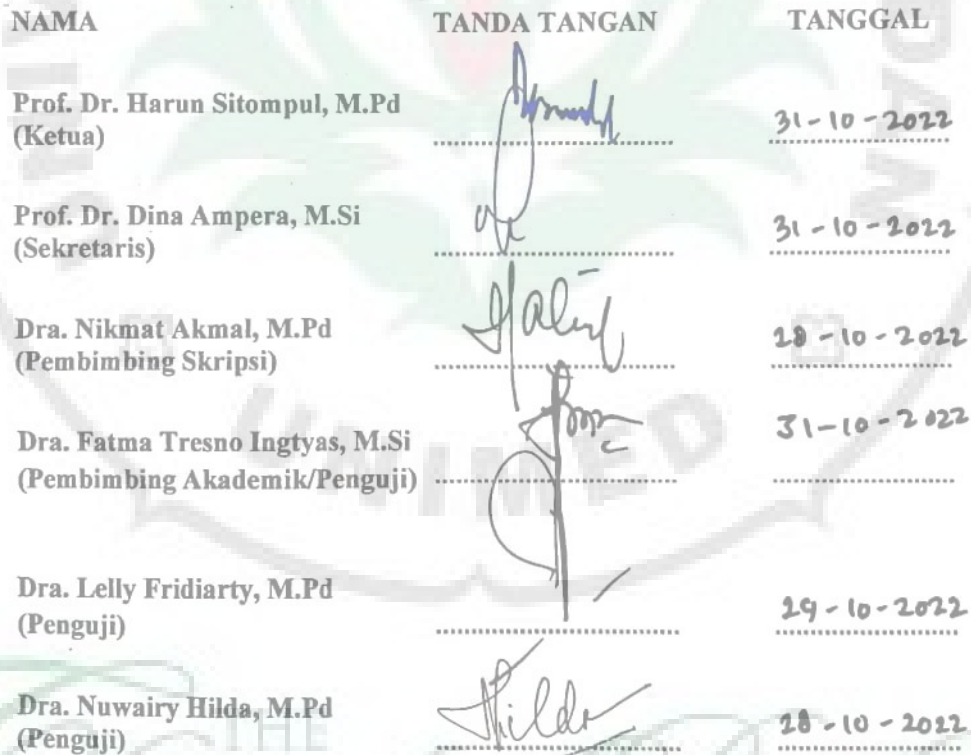 NAMA TANDA TANGAN TANGGAL
Prof. Dr. Harun Sitompul, M.Pd
(Ketua) 31-10-2022
Prof. Dr. Dina Ampera, M.Si
(Sekretaris) 31-10-2022
Dra. Nikmat Akmal, M.Pd
(Pembimbing Skripsi) 28-10-2022
Dra. Fatma Tresno Ingtyas, M.Si 31-10-2022
(Pembimbing Akademik/Penguji)
UNIMED
Dra. Lelly Fridiarty, M.Pd
(Penguji) 29-10-2022
Dra. Nuwairy Hilda, M.Pd Hilda
(Penguji) 28-10-2022
THE